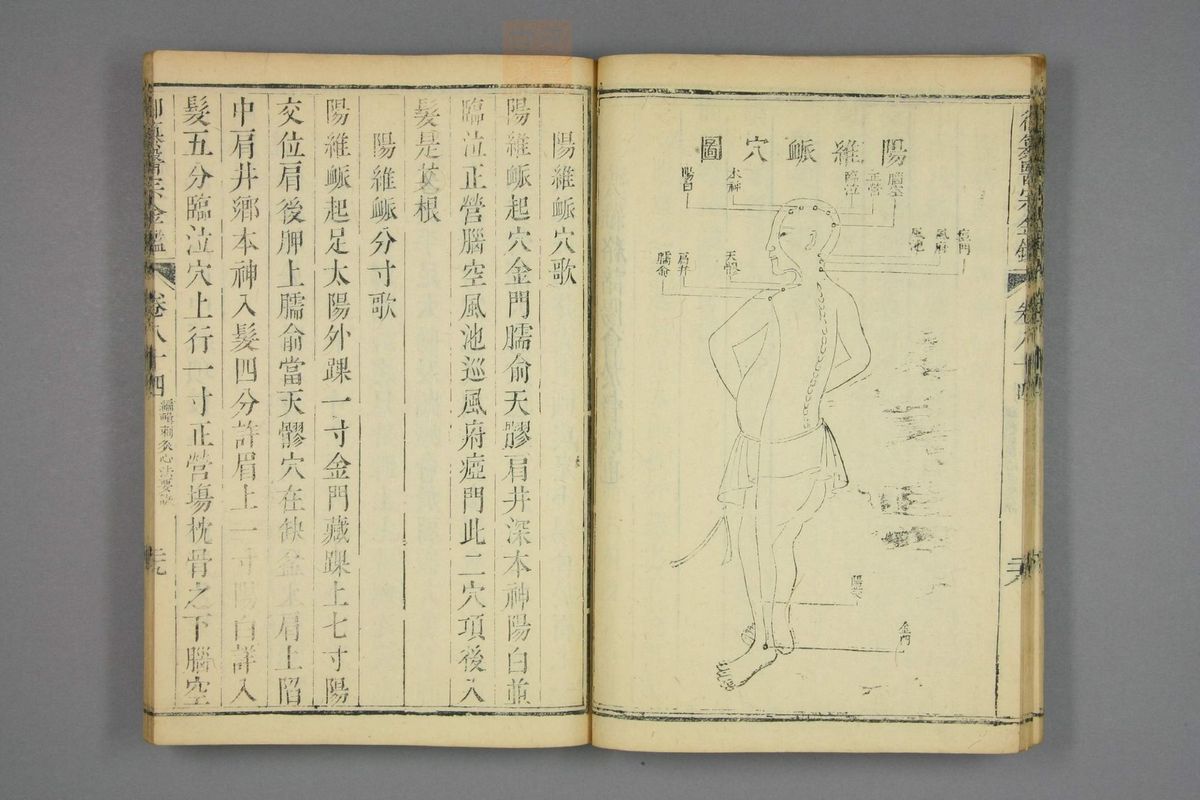 陽維脈穴圖
腦空
正營
臨泣
本神
陽白
瘂門
風府
風池
天髎
肩井
臑俞
陽交
金門
卷八十四
陽維脈穴歌
陽維脈起穴金門臑俞天髎肩井深本神陽白並
臨泣正營腦空風池巡風府瘂門此二穴項後入
髮是其根
陽維脈分寸歌
陽維脈起足太陽外踝一寸金門藏踝上七寸陽
交位肩後胛上臑俞當天髎穴在缺盆上肩上陷
中肩井鄉本神入髮四分許眉上一寸陽白詳入
髮五分臨泣穴上行一寸正營場枕骨之下腦空
御纂醫宗金鑑
卷八十四
編輯刺灸心法要訣